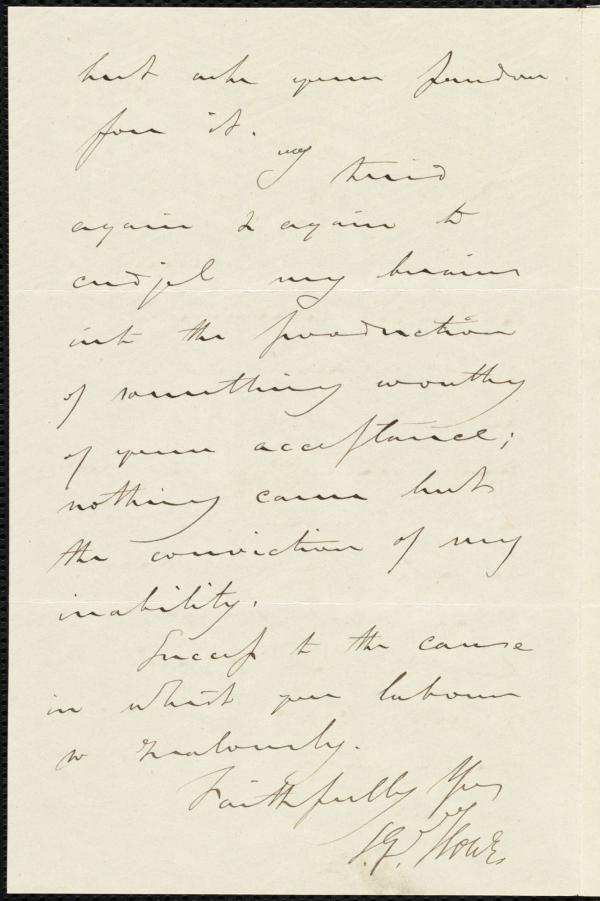 but ask your pardon
for it.
I tried
again & again to
cudjel my brains
into the production
of something worthy
of your acceptance;
nothing came but
the conviction of my
inability.
Success to the cause
in which you labour
so zealously.
Faithfully Yrs
S.G. Howe